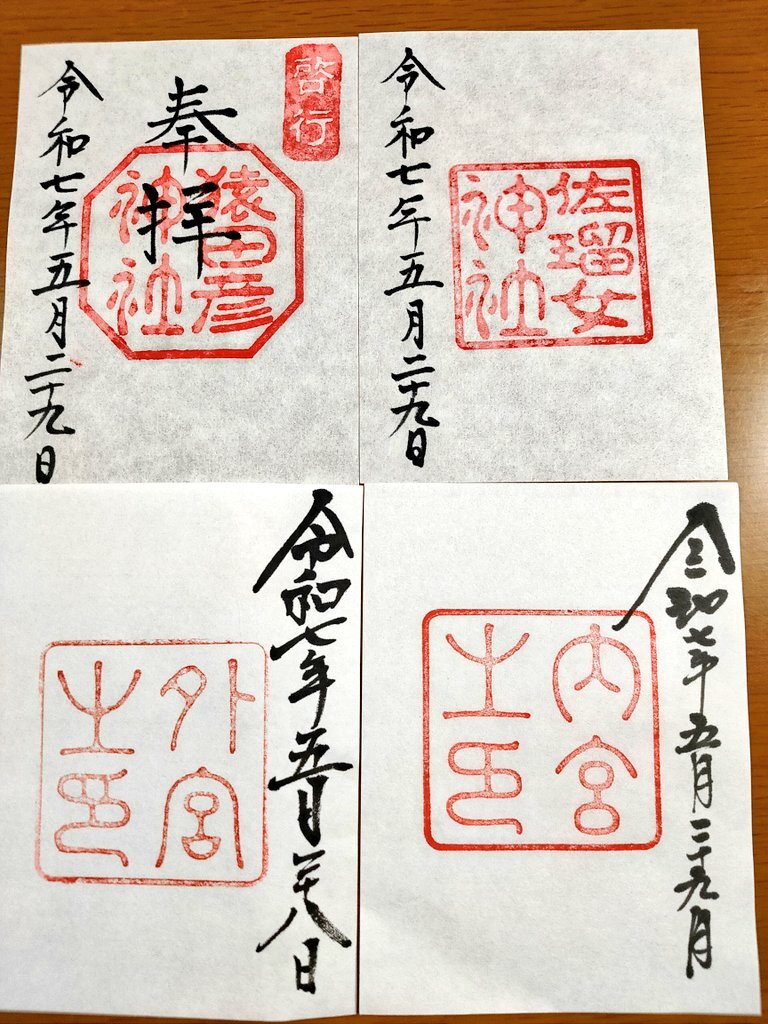 啓行
奉拝
猿田彦
神社
令和七年五月二十九日
佐瑠女
神社
令和七年五月二十九日
令和七年五月二十八日
外宮
之印
令和七年五月二十九日
内宮
之印